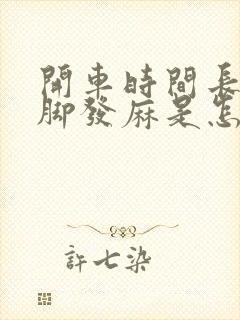 開車時間長
腳發麻是怎
許七染